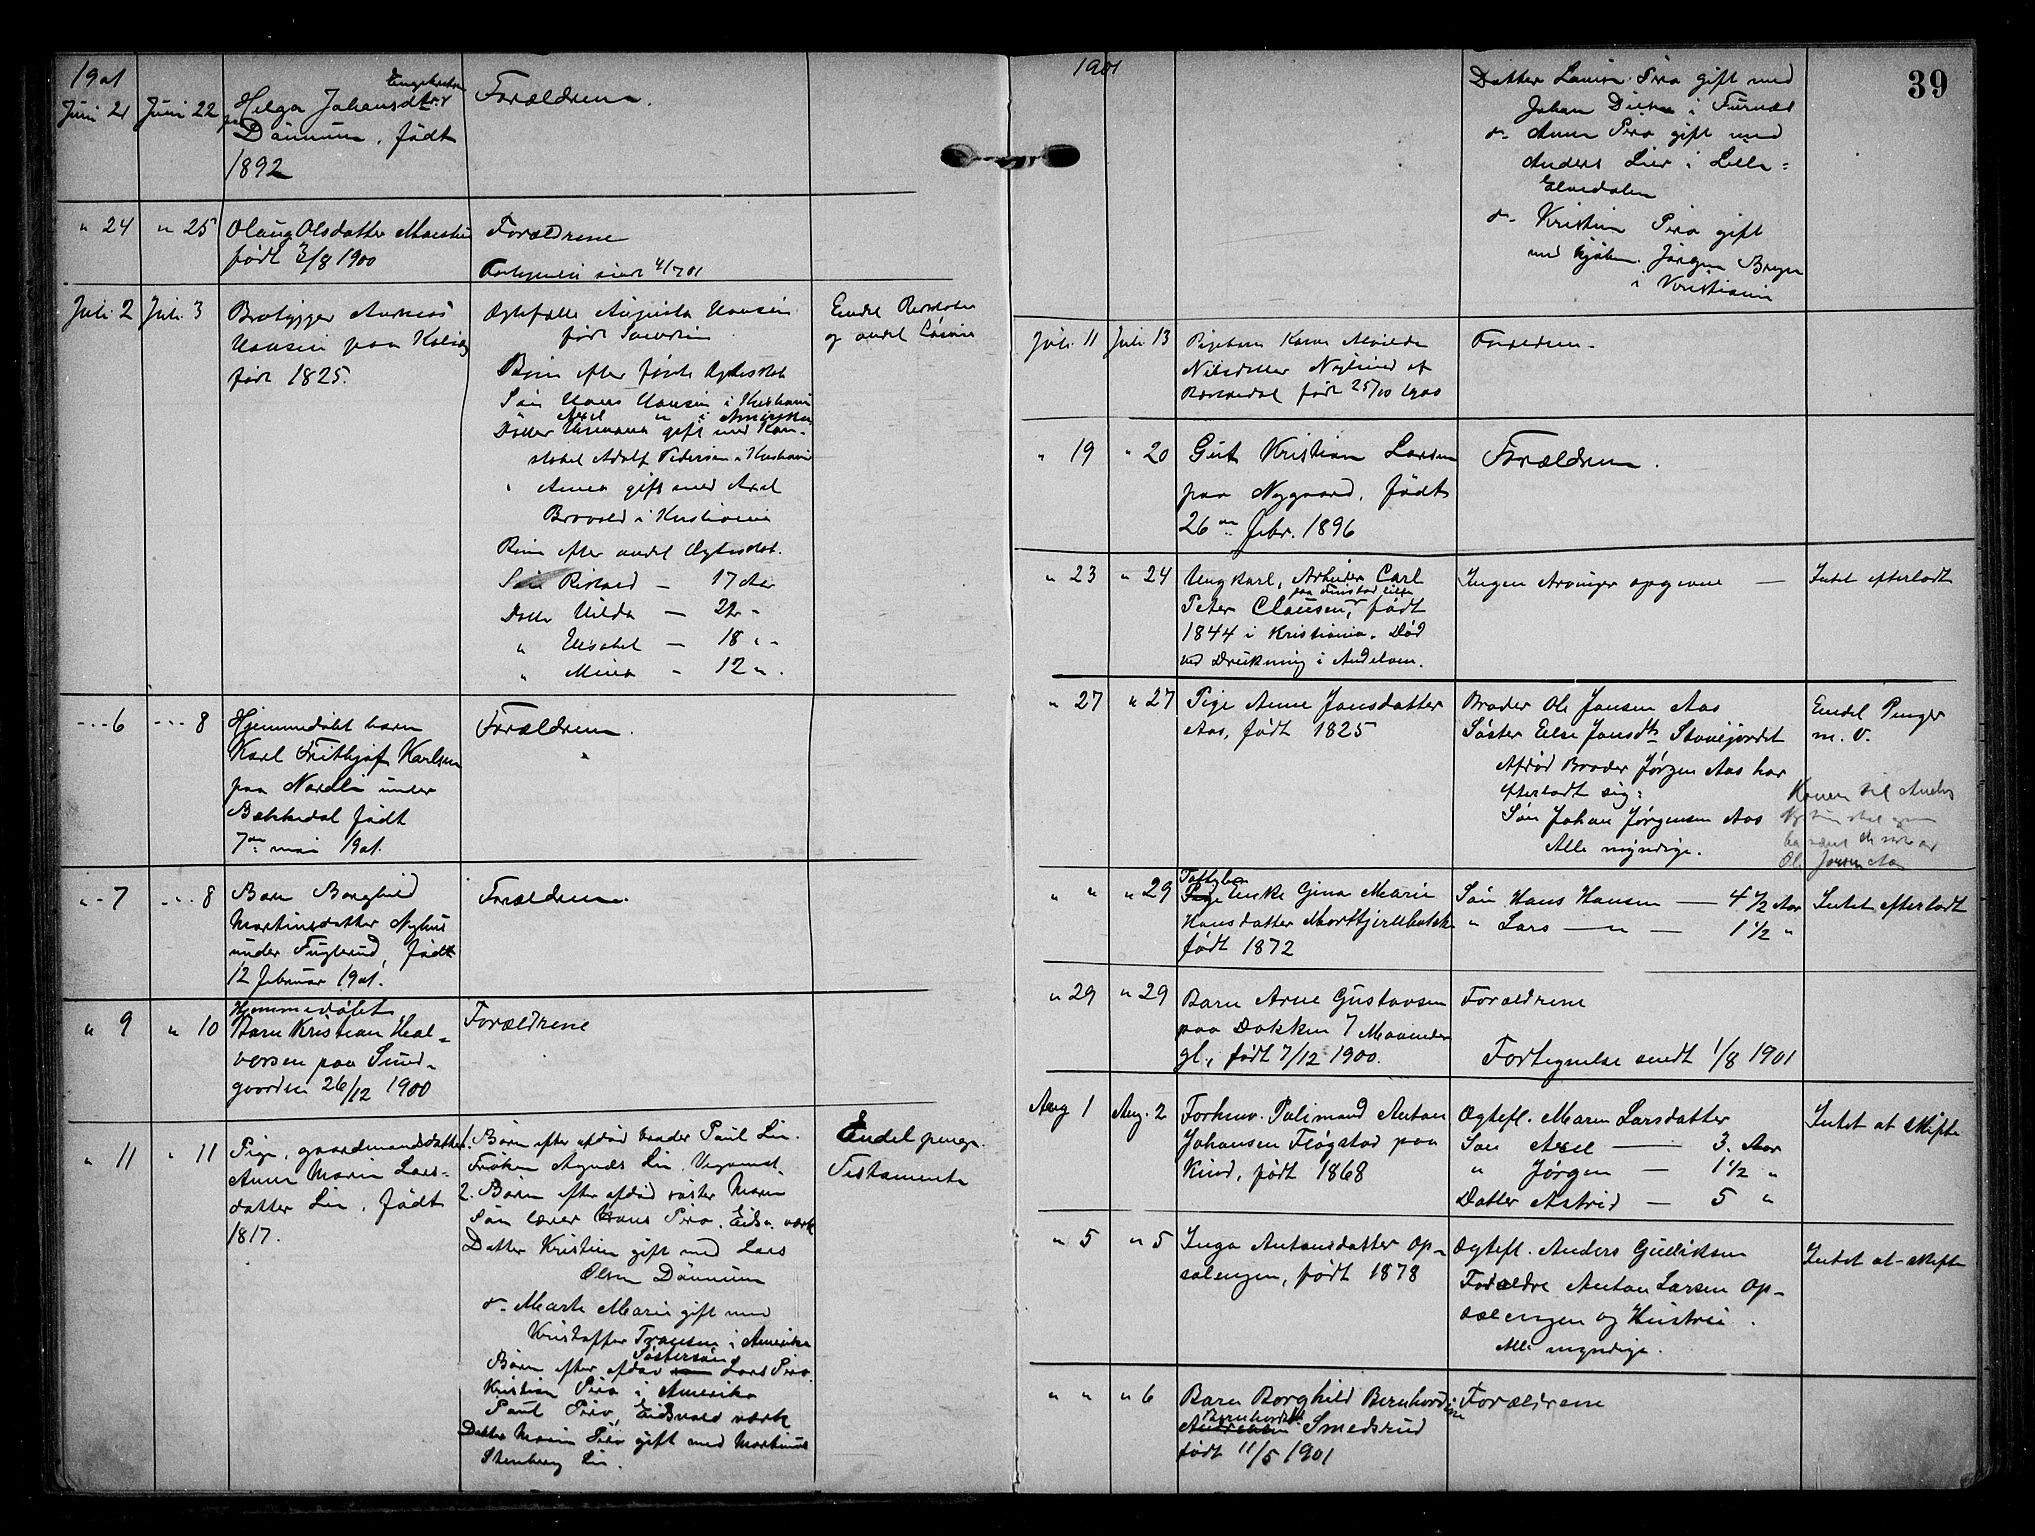 1901
Juni 21 Juni 22 Helga Johansdtr Engebretsen Forældrene.
paa Dønnum, født
1892
" 24 " 25 Olaug Olsdatter Forældrene
født 3/8 1900
Fortegnelse sendt 4/7 01
Juli 2 Juli 3 Brobygger Andreas Ægtefælle Augusta Hansen Endel
Hansen paa født og andet Løsøre
født 1825. Børn efter første Ægteskab
Søn Hans Hansen i Kristiania
Axel " i Amerika
Datter gift med Kon-
stabel Adolf Pedersen i Kristiania
" Anna gift med Axel
Brovold i Kristiania
Børn efter andet Ægteskab.
Søn Rikard — 17 Aar
Datter Hilda — 21 "
" Elisabet — 18 "
" Mina " 12 "
" 6 " 8 Hjemmedøbt barn Forældrene.
Karl Frithjof Karlsen
paa Nordli under
Bækkedal født
7de mai 1901.
" 7 " 8 Barn Borghild Forældrene.
Martinsdatter Nyhus
under Fuglerud, født
12 Februar 1901.
" 9 " 10 Hjemmedøbt Forældrene
Barn Kristian Hal-
vorsen paa Smed-
gaarden 26/12 1900
" 11 " 11 Pige, gaardmandsdatter 1. Børn efter afdød broder Paul Lie. Endel penge.
Anne Marie Lars- Frøken Agnes Lie, Testamente
datter Lie, født 2. Børn efter afdød søster Marie
1817. Søn lærer Hans Piro, Eidsv. værk
Datter Kristine gift med Lars
Olsen Dønnum
do. Marte Marie gift med
Kristoffer Fransen i Amerika
Børn efter afdød Søstersøn Lars Piro
Kristian Piro i Amerika
Paul Piro, Eidsvold værk
Datter Marie Piro gift med Martinus
Stenberg Lie.
1901 39
Datter Louise Piro gift med
Johan i Furnæs
do. Anne Piro gift med
Anders Lier i Lille-
Elvedalen
do. Kristine Piro gift
med kjøbm. Jørgen
i Kristiania
Juli 11 Juli 13 Pigebarn Karen Alvilde Forældrene.
Nilsdatter af
født 25/10 1900
" 19 " 20 Gut Kristian Larsen Forældrene.
paa Nygaard, født
26de Febr. 1896
" 23 " 24 Ungkarl, Arbeider Carl Ingen Arvinger opgivne — Intet efterladt
paa Finstad eie
Peter Clausen, født
1844 i Kristiania. Død
ved Drukning i Andelven.
" 27 " 27 Pige Anne Jonsdatter Broder Ole Jonsen Aas Endel Penger
Aas, født 1825 Søster Else Jonsdtr m. v.
Afdød Broder Jørgen Aas har
efterladt sig:
Søn Johan Jørgensen Aas
Alle myndige.
Konen til Anders
Ole Jonsen Aas
" " " 29 Enke Gina Marie Søn Hans Hansen — 4 1/2 Aar Intet efterladt
Hansdatter " Lars — " — 1 1/2 "
født 1872
" 29 " 29 Barn Arne Gustavsen Forældrene
paa Dokken 7 Maaneder
gl., født 7/12 1900. Fortegnelse sendt 1/8 1901
Aug 1 Aug. 2 Forhenv. Politimand Anton Ægtefl. Maren Larsdatter Intet at skifte
Johansen Fløgstad paa Søn Axel — 3. Aar
Rud, født 1868 " Jørgen — 1 1/2 "
Datter Astrid — 5 "
" 5 " 5 Inga Antonsdatter Op- Ægtefl. Anders Gulliksen Intet at skifte
salengen, født 1878 Forældre Anton Larsen Op-
salengen og Hustru.
Alle myndige.
" " " 6 Barn Borghild Bernhardine Forældrene
Bernhardsdtr Smedsrud
født 11/5 1901